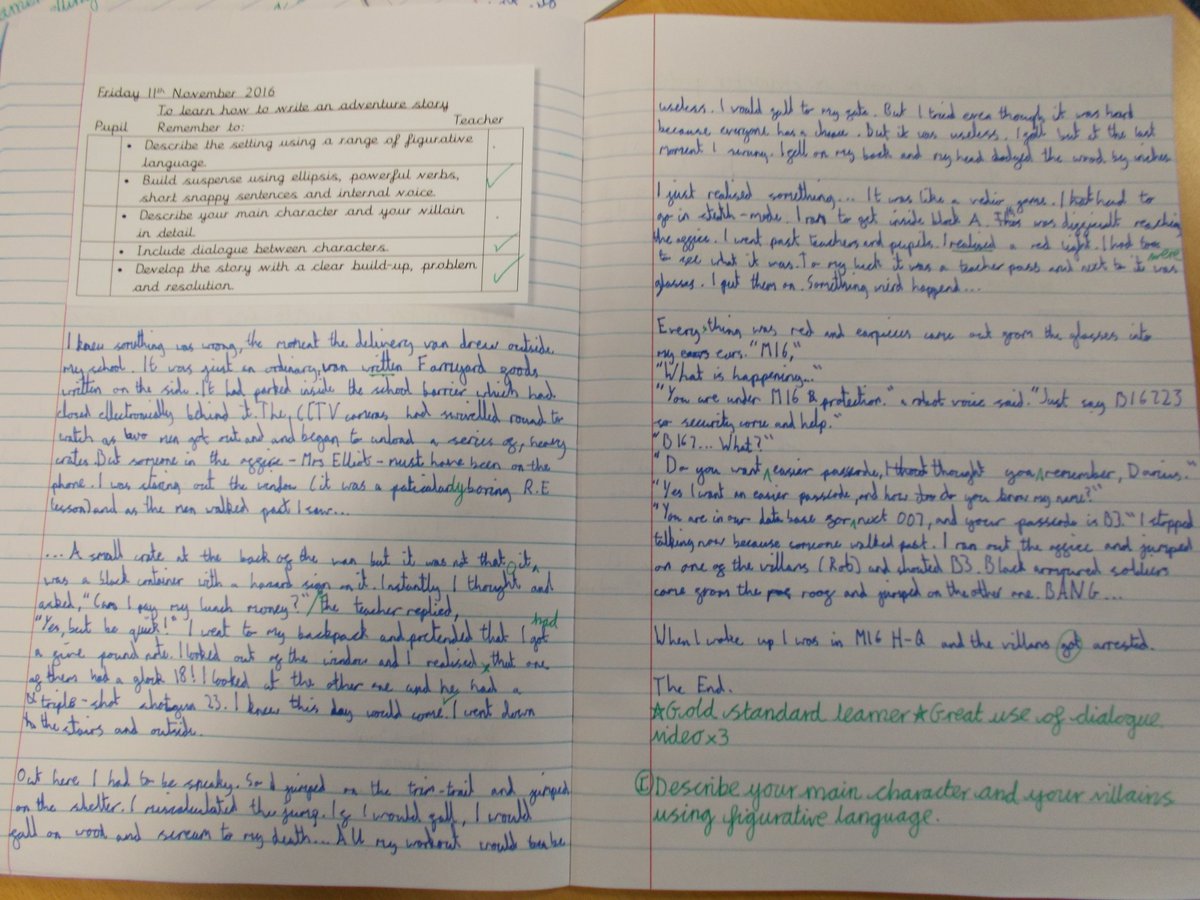 Friday 11th November 2016
To learn how to write an adventure story
Pupil Remember to: Teacher
• Describe the setting using a range of figurative
language.
• Build suspense using ellipsis, powerful verbs,
short snappy sentences and internal voice.
• Describe your main character and your villain
in detail.
• Include dialogue between characters.
• Develop the story with a clear build-up, problem
and resolution.
I knew somthing was wrong, the moment the delivery van drew outside
my school. It was just an ordinary, van written Farmyard goods
written on the side. It had parked inside the school barrier which had
closed electronically behind it. The CCTV cameras had swivelled round to
watch as two men got out and and began to unload a series of, heavy
crates. But someone in the office - Mrs Elliot - must have been on the
phone. I was staring out the window (it was a paticularly boring R.E
lesson) and as the men walked past I saw...
... A small crate at the back of the van but it was not that, it
was a black container with a hazard sign on it. Instantly, I thought and
asked, "Can I pay my lunch money?" / the teacher replied,
"Yes, but be quick!" I went to my backpack and pretended that I got had
a five pound note. I looked out of the window and I realised that one
of them had a glock 18! I looked at the other one and he had a
triple-shot shotgun 23. I knew this day would come. I went down
to the stairs and outside.
Out here I had to be sneaky. So I jumped on the trim-trail and jumped
on the shelter. I miscalculated the jump. If I would fall, I would
fall on wood and scream to my death... All my workout would be
useless. I would fall to my fate. But I tried even though it was hard
because everyone has a chance. But it was useless. I fell but at the last
moment I swung. I fell on my back and my head dodged the wood by inches
I just realised something... It was like a vedio game. I had to
go in stealth-mode. I ran to get inside block A. This was difficult reaching
the office. I went past teachers and pupils. I realised a red light. I had
to see what it was. To my luck it was a teacher pass and next to it was were
glasses. I put them on. Something wird happend...
Every thing was red and earpieces came out from the glasses into
my ears. "M16,"
"What is happening..."
"You are under M16 protection." a robot voice said. "Just say B16723
so security come and help."
"B167... What?"
"Do you want easier passcode, I thought you remember, Darius."
"Yes I want an easier passcode, and how do you know my name?"
"You are in our data base for next 007, and your passcode is B3." I stopped
talking now because someone walked past. I ran out the office and jumped
on one of the villans (Rob) and shouted B3. Black armoured soldiers
came from the roof and jumped on the other one. BANG...
When I woke up I was in M16 H-Q and the villans got arrested.
The End.
☆Gold standard learner ☆Great use of dialogue
video x3
Ⓘ Describe your main character and your villains
using figurative language.